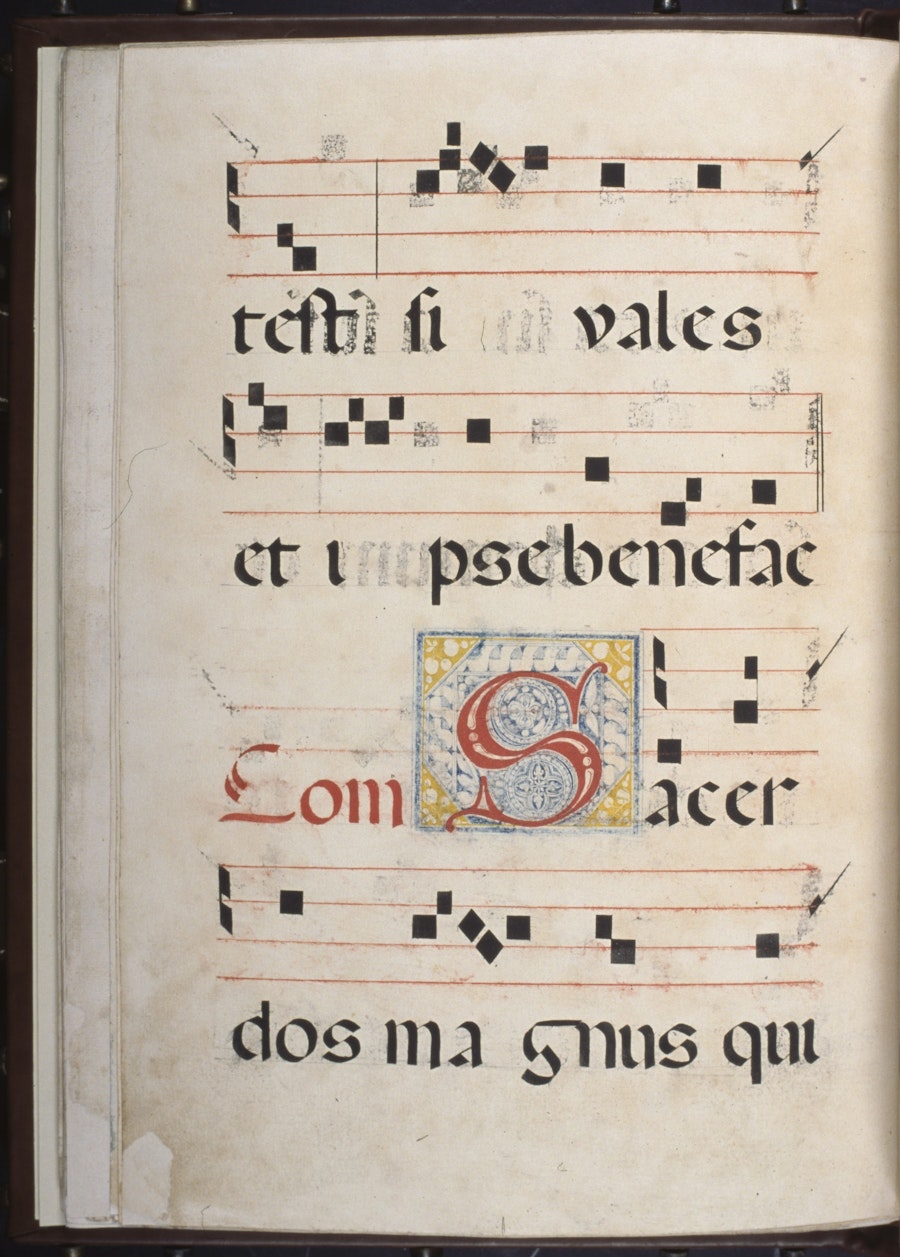 testi si vales
et i psebenefac
Com Sacer
dos ma gnus qui